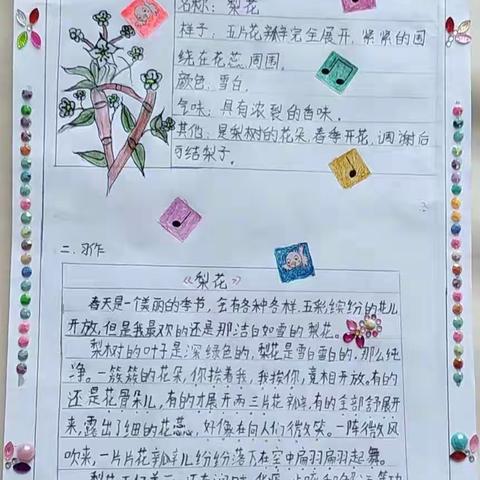 名称：梨花
样子：五片花瓣完全展开，紧紧的围
绕在花蕊周围。
颜色：雪白。
气味：具有浓裂的香味。
其他：是梨树的花朵，春季开花，凋谢后
可结梨子。
二、习作
《梨花》
春天是一个美丽的季节，会有各种各样，五彩缤纷的花儿
开放，但是我最欢的还是那洁白如雪的梨花。
梨树的叶子是深绿色的，梨花是雪白雪白的，那么纯
净。一簇簇的花朵，你挨着我，我挨你，竟相开放。有的
还是花骨朵儿，有的才展开两三片花瓣，有的全部舒展开
来，露出了细的花蕊，好像在向人们微笑。一阵微风
吹来，一片片花瓣儿纷纷落下在空中扁羽扁羽起舞。